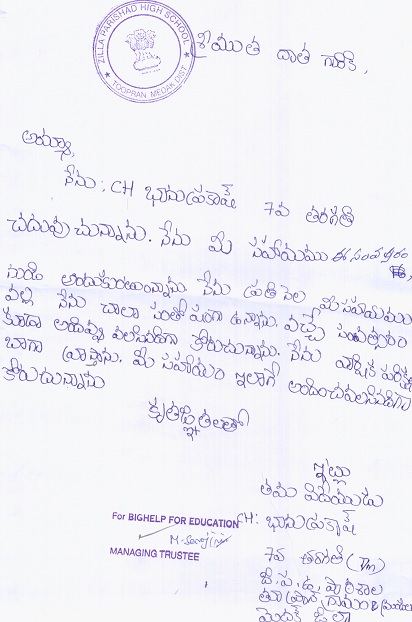 ZILLA PARISHAD HIGH SCHOOL
TOOPRAN MEDAK DIST
శ్రీయుత దాత గారికి,
అయ్యా,
నేను: CH భానుప్రకాష్ 7వ తరగతి
చదువుచున్నాను. నేను మీ సహాయము ఈ సంవత్సరం
నుండి అందుకుంటున్నాను. నేను ప్రతి నెల మీ సహాయము
వల్ల నేను చాలా సంతోషంగా ఉన్నాను. వచ్చే సంవత్సరం
కూడా కోరుచున్నాను. నేను వార్షిక పరీక్ష
బాగా వ్రాస్తాను. మీ సహాయం ఇలాగే అందించవలసినదిగా
కోరుచున్నాను
కృతజ్ఞతలతో
ఇట్లు
తమ విధేయుడు
CH: భానుప్రకాష్
7వ తరగతి (T/m)
జి.ప.ఉ. పాఠశాల
తూప్రాన్ గ్రామం &
మెదక్ జిల్లా
For BIGHELP FOR EDUCATION
MANAGING TRUSTEE